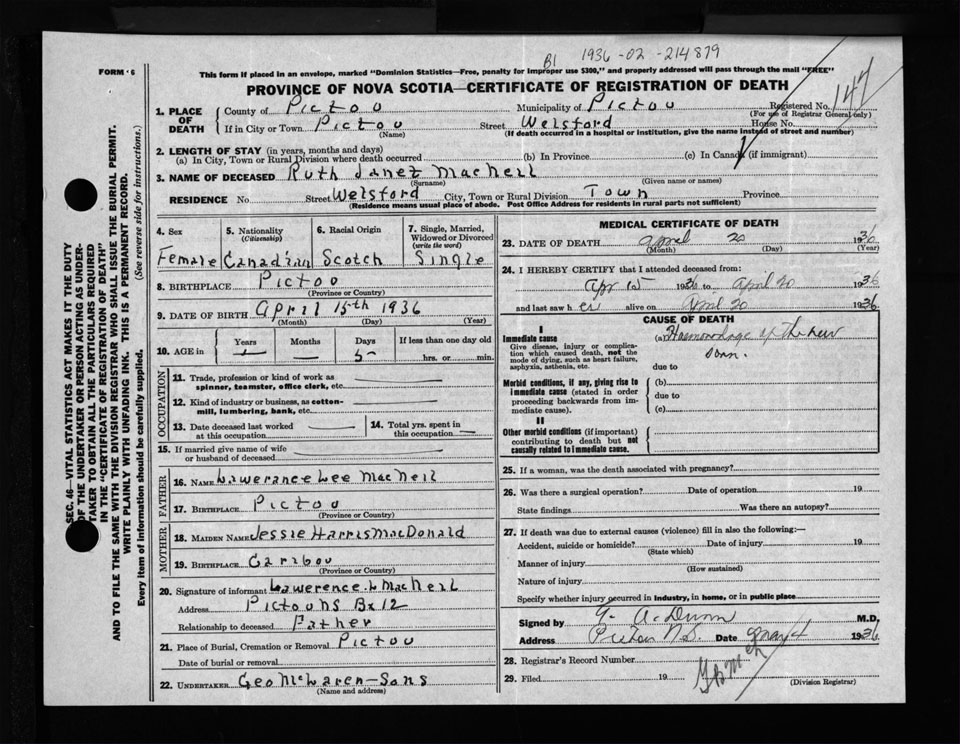 B1 1936-02-214879
FORM 6
This form if placed in an envelope, marked "Dominion Statistics—Free, penalty for improper use $300," and properly addressed will pass through the mail "FREE"
PROVINCE OF NOVA SCOTIA—CERTIFICATE OF REGISTRATION OF DEATH
SEC. 46—VITAL STATISTICS ACT MAKES IT THE DUTY
OF THE UNDERTAKER OR PERSON ACTING AS UNDER-
TAKER TO OBTAIN ALL THE PARTICULARS REQUIRED
IN THE "CERTIFICATE OF REGISTRATION OF DEATH"
AND TO FILE THE SAME WITH THE DIVISION REGISTRAR WHO SHALL ISSUE THE BURIAL PERMIT.
WRITE PLAINLY WITH UNFADING INK. THIS IS A PERMANENT RECORD.
Every item of information should be carefully supplied. (See reverse side for instructions.)
1. PLACE OF DEATH
County of Pictou Municipality of Pictou Registered No. 147
(For use of Registrar General only)
If in City or Town Pictou Street Welsford House No.
(Name) (If death occurred in a hospital or institution, give the name instead of street and number)
2. LENGTH OF STAY (in years, months and days)
(a) In City, Town or Rural Division where death occurred (b) In Province (c) In Canada (if immigrant)
3. NAME OF DECEASED Ruth Janet MacNeil
(Surname) (Given name or names)
RESIDENCE No. Street Welsford City, Town or Rural Division Town Province
(Residence means usual place of abode. Post Office Address for residents in rural parts not sufficient)
4. Sex 5. Nationality (Citizenship) 6. Racial Origin 7. Single, Married, Widowed or Divorced (write the word)
Female Canadian Scotch Single
8. BIRTHPLACE Pictou
(Province or Country)
9. DATE OF BIRTH April 15th 1936
(Month) (Day) (Year)
10. AGE in Years Months Days If less than one day old
— — 5 hrs. or min.
OCCUPATION
11. Trade, profession or kind of work as
spinner, teamster, office clerk, etc.
12. Kind of industry or business, as cotton-
mill, lumbering, bank, etc.
13. Date deceased last worked at this occupation
14. Total yrs. spent in this occupation
15. If married give name of wife
or husband of deceased
FATHER
16. NAME Lawerance Lee MacNeil
17. BIRTHPLACE Pictou
(Province or Country)
MOTHER
18. MAIDEN NAME Jessie Harris MacDonald
19. BIRTHPLACE Caribou
(Province or Country)
20. Signature of informant Lawerence L MacNeil
Address Pictou NS Bx 12
Relationship to deceased Father
21. Place of Burial, Cremation or Removal Pictou
Date of burial or removal
22. UNDERTAKER Geo McLaren—Sons
(Name and address)
MEDICAL CERTIFICATE OF DEATH
23. DATE OF DEATH April 20 1936
(Month) (Day) (Year)
24. I HEREBY CERTIFY that I attended deceased from:
Apr 15 1936 to April 20 1936
and last saw her alive on April 20 1936
CAUSE OF DEATH
I
Immediate cause
Give disease, injury or complica-
tion which caused death, not the
mode of dying, such as heart failure,
asphyxia, asthenia, etc.
(a) Haemorrhage of the new
born.
due to
Morbid conditions, if any, giving rise to
immediate cause (stated in order
proceeding backwards from im-
mediate cause).
(b)
due to
(c)
II
Other morbid conditions (if important)
contributing to death but not
causally related to immediate cause.
25. If a woman, was the death associated with pregnancy?
26. Was there a surgical operation? Date of operation 19
State findings Was there an autopsy?
27. If death was due to external causes (violence) fill in also the following:—
Accident, suicide or homicide? Date of injury 19
(State which)
Manner of injury
(How sustained)
Nature of injury
Specify whether injury occurred in industry, in home, or in public place
Signed by G. A. Dunn M.D.
Address Pictou N.S. Date May 4 1936
28. Registrar's Record Number
29. Filed 19
(Division Registrar)